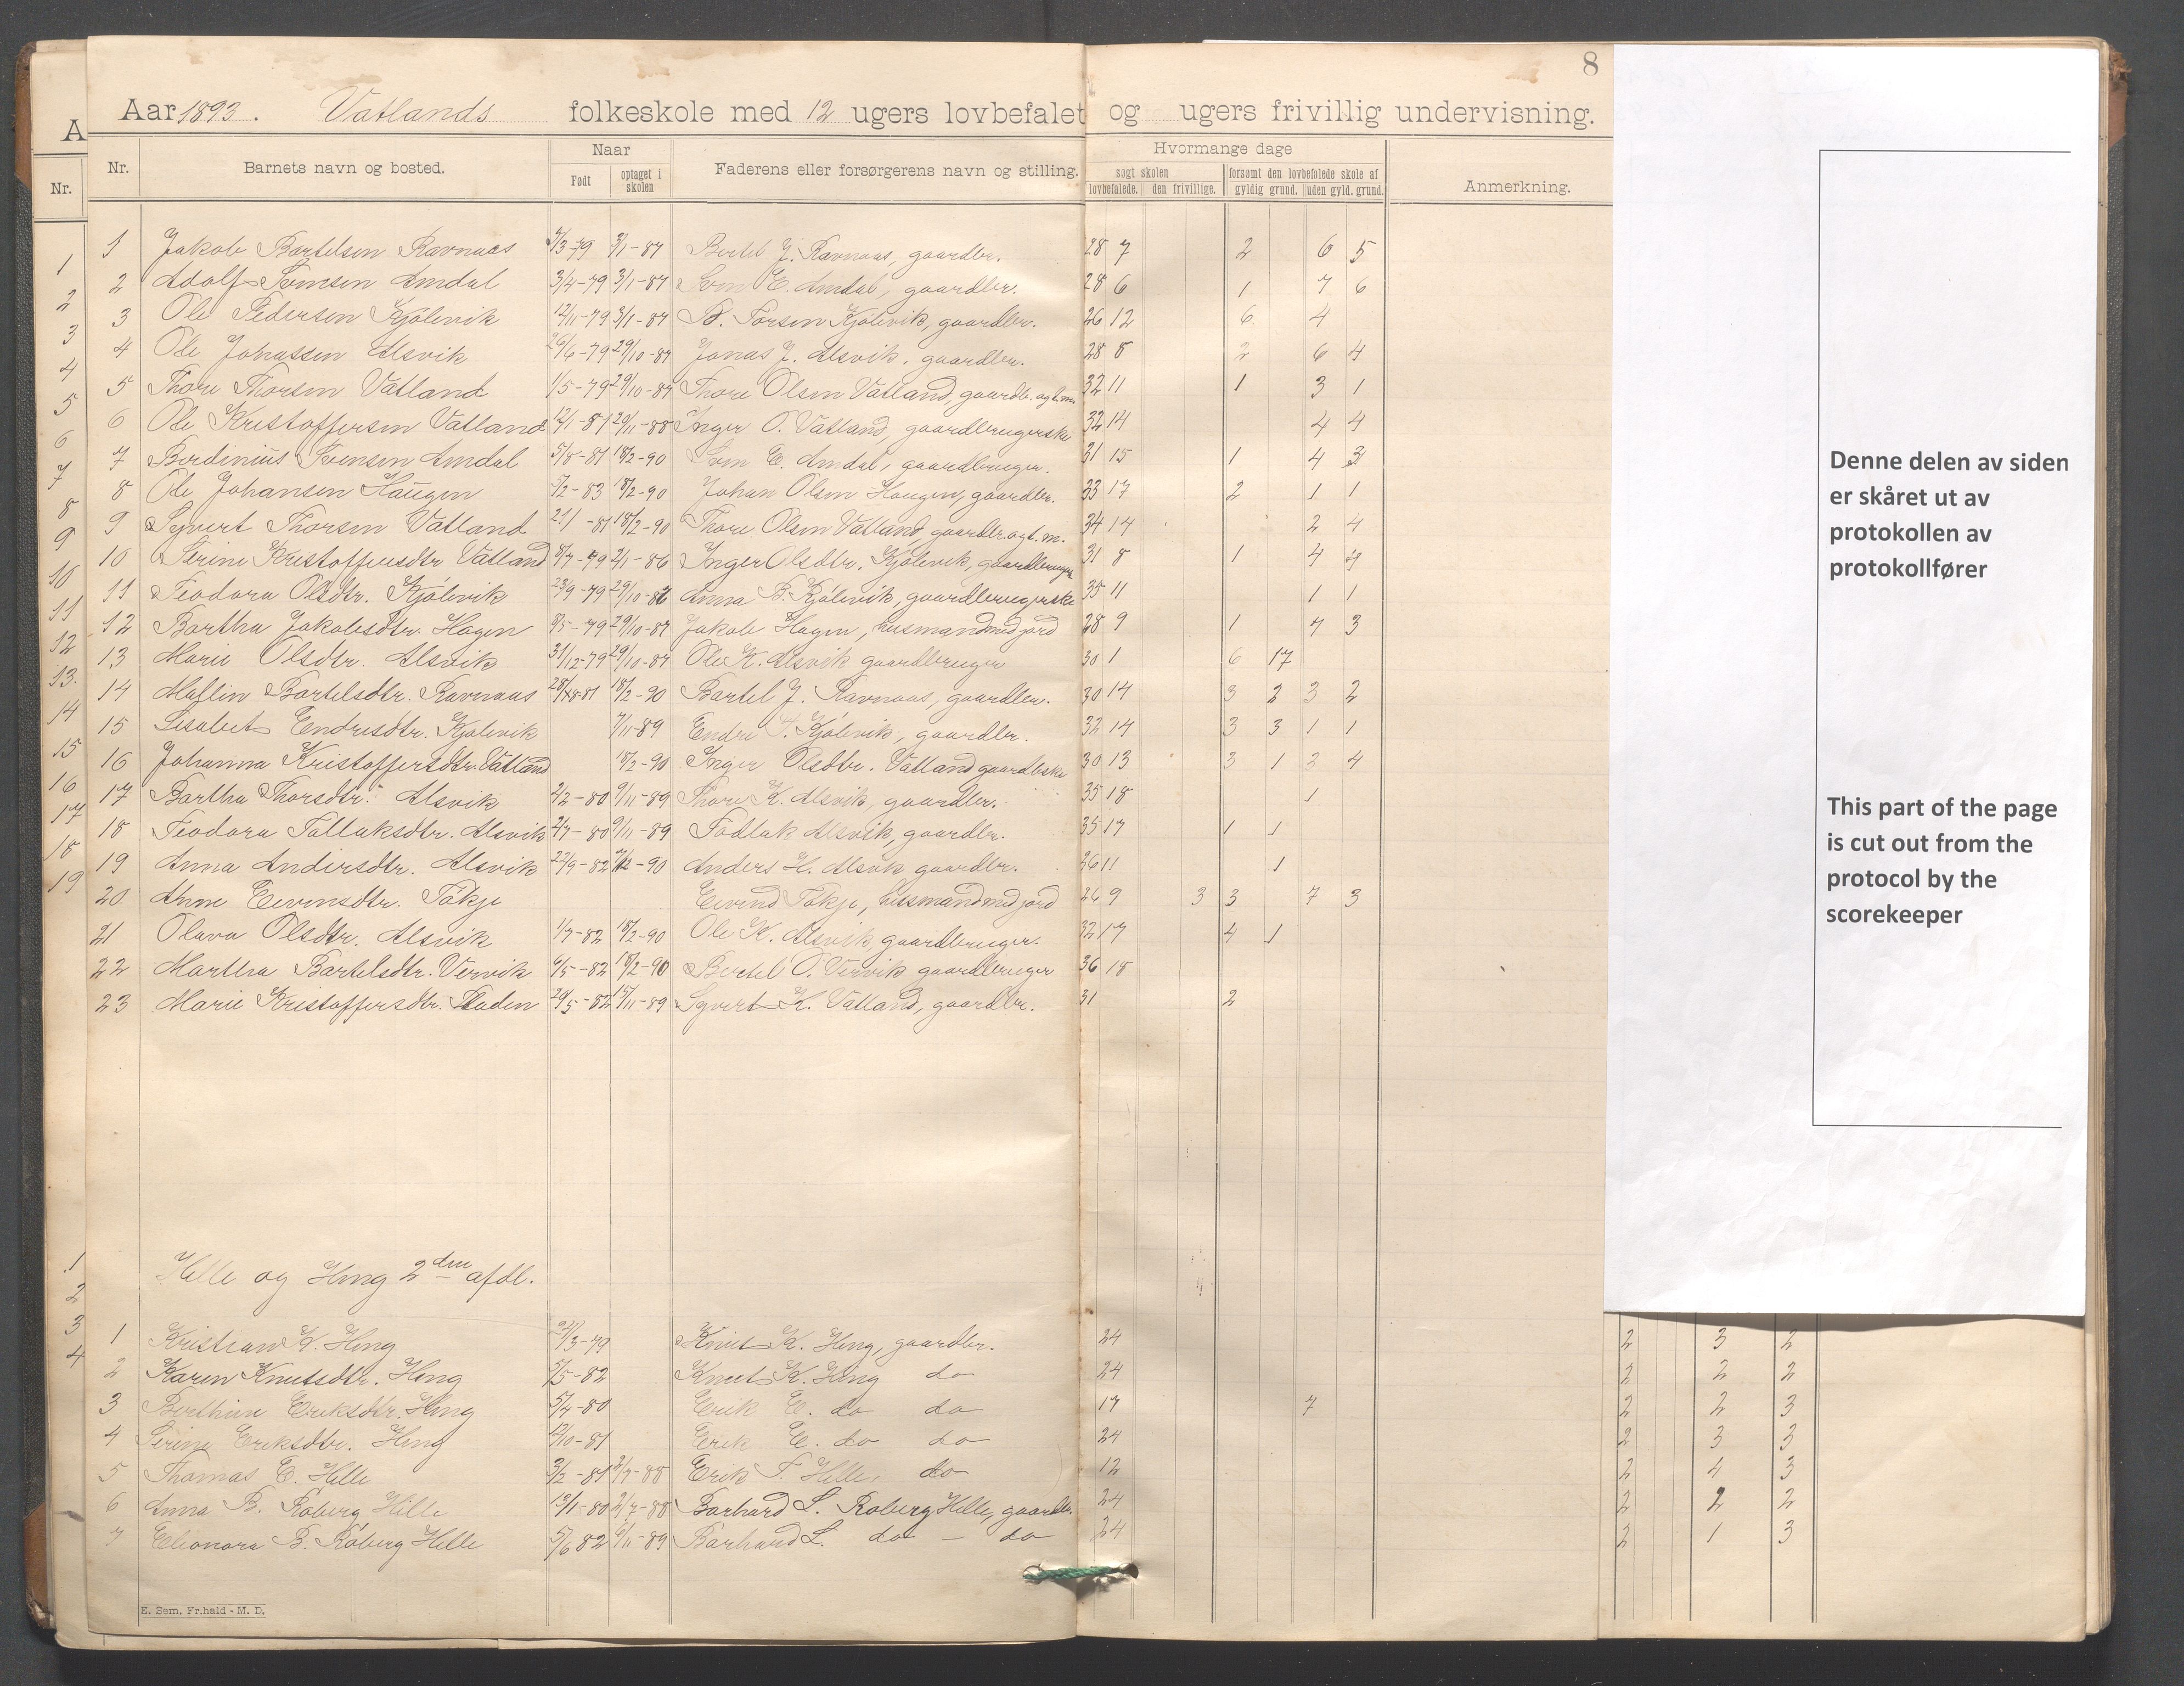 8
Aar 1893. Vatlands folkeskole med 12 ugers lovbefalet og ugers frivillig undervisning.
A
Nr.
Nr. Barnets navn og bosted. Naar Født optaget i skolen Faderens eller forsørgerens navn og stilling. Hvormange dage søgt skolen lovbefalede. den frivillige. forsømt den lovbefalede skole af gyldig grund. uden gyld. grund. Anmerkning.
1 Jakob Bartelsen Ravnaas 3-79 3/1-87 Bertel J. Ravnaas, gaardbr. 28 7 2 6 5
2 Adolf Svensen Amdal 3/4-79 3/1-87 Sven E. Amdal, gaardbr. 28 6 1 7 6
3 Ole Pedersen Kjölevik 12/11-79 3/1-87 P. Torsen Kjölevik, gaardbr. 26 12 6 4
4 Ole Johnassen Alsvik 26/6-79 29/10-87 Jonas J. Alsvik, gaardbr. 28 8 2 6 4
5 Thore Thorsen Vatland 1/5-79 29/10-87 Thore Olsen Vatland, gaardb. og t.m. 32 11 1 3 1
6 Ole Kristoffersen Vatland 12/1-81 29/11-88 Inger O. Vatland, gaardbrugerske 32 14 4 4
7 Berdinius Svensen Amdal 5/8-81 18/2-90 Sven E. Amdal, gaardbruger. 31 15 1 4 3
8 Ole Johansen Haugen 5/2-83 18/2-90 Johan Olsen Haugen, gaardbr. 33 17 2 1 1
9 Syvert Thorsen Vatland 21/1-81 18/2-90 Thore Olsen Vatland, gaardbr. og t.m. 34 14 2 4
10 Serine Kristoffersdtr Vatland 8/7-79 2/1-86 Inger Olsdtr. Kjölevik, gaardbruger 31 8 1 4 4
11 Teodora Olsdtr. Kjölevik 23/9-79 29/10-86 Anna B. Kjölevik, gaardbrugerske 35 11 1 1
12 Bertha Jakobsdtr. Hagen 8/5-79 29/10-87 Jakob Hagen, husmand med jord 28 9 1 7 3
13 Marie Olsdtr. Alsvik 31/12-79 29/10-87 Ole K. Alsvik gaardbruger 30 1 6 17
14 Mallin Bartelsdtr. Ravnaas 18/2-90 Bartel J. Ravnaas, gaardbr. 30 14 3 2 3 2
15 Lisabet Endresdtr. Kjölevik 7/11-89 Endre Kjölevik, gaardbr. 32 14 3 3 1 1
16 Johanna Kristoffersdtr. Vatland 18/2-90 Inger Olsdtr. Vatland gaardbrske 30 13 3 1 3 4
17 Bertha Thorsdtr. Alsvik 2/2-80 9/11-89 Thore K. Alsvik, gaardbr. 35 18 1
18 Teodora Tallaksdtr. Alsvik 2/7-80 9/11-89 Tallak Alsvik, gaardbr. 35 17 1 1
19 Anna Andersdtr. Alsvik 27/9-82 -90 Anders H. Alsvik gaardbr. 36 11 1
20 Anne Eevensdtr. Tökje Eevind Tökje, husmand med jord 26 9 3 3 7 3
21 Olava Olsdtr. Alsvik 1/7-82 18/2-90 Ole K. Alsvik, gaardbruger. 32 17 4 1
22 Martha Bartelsdtr. Vervik 6/5-82 18/2-90 Bertel O. Vervik gaardbruger 36 18
23 Marie Kristoffersdtr. 29/5-82 15/11-89 Syvert K. Vatland, gaardbr. 31 2
Helle og Heng 2den afdl.
1 Kristian K. Heng 3-79 Knut K. Heng, gaardbr. 24 2 3 2
2 Karen Knutsdtr. Heng 5/5-82 Knut K. Heng do 24 2 2 2
3 Berthine Eriksdtr. Heng 5/4-80 Erik E. do do 17 7 2 2 3
4 Serine Eriksdtr. Heng 12/10-81 Erik E. do do 24 2 3 3
5 Thomas E. Helle 3/2-81 2/7-88 Erik T. Helle, do 12 2 4 3
6 Anna B. Roberg Helle 13/1-80 2/7-88 Barhard L. Roberg Helle, gaardbr. 24 2 2 2
7 Eleonora B. Roberg Helle 5/6 82 6/11-89 Barhard L. do - do 24 2 1 3
E. Sem, Fr.hald - M. D.
1
2
3
4
5
6
7
8
9
10
11
12
13.
14
15
16
17
18
19
1
2
3
4
Denne delen av siden
er skåret ut av
protokollen av
protokollfører
This part of the page
is cut out from the
protocol by the
scorekeeper